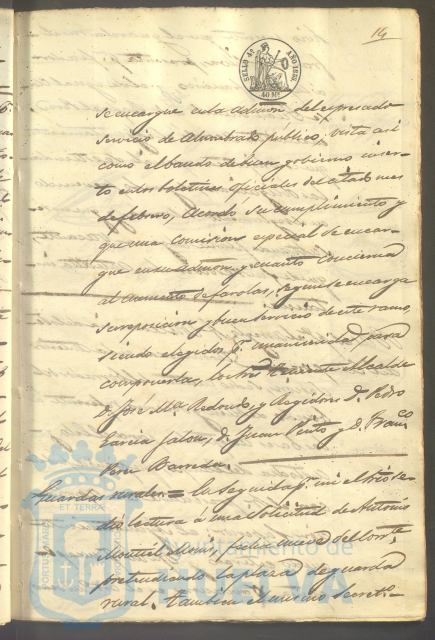 14
SELLO 4º AÑO 185
40 Ms.
se encargue en la admon. del espresado
servicio de Alumbrado publico, vista asi
como el bando de buen gobierno incer-
to en los boletines oficiales del citado mes
de febrero, Acordó su cumplimiento y
que una comision especial se encar-
gue en su Admon. y cuanto concierna
al aumento de farolas, y que se encarga
reposicion y buen servicio de este ramo,
siendo elegidos pr. unanimidad para
componerla, los Sres. Teniente Alcalde
D. José Ma. Redondo, y Regidores D. Pedro
Garcia Jalon, D. Juan Pinto y D. Franco.
Barreda.
Guardas rurales = En seguida pr. mi el Srio se
dió lectura á una Solicitud de Antonio
Montiel
pretendiendo la plaza de guarda
rural. Tambien el mismo Secreto.
PORTUS MARIS ET TERRAE CUSTODIA
Ayuntamiento de
HUELVA